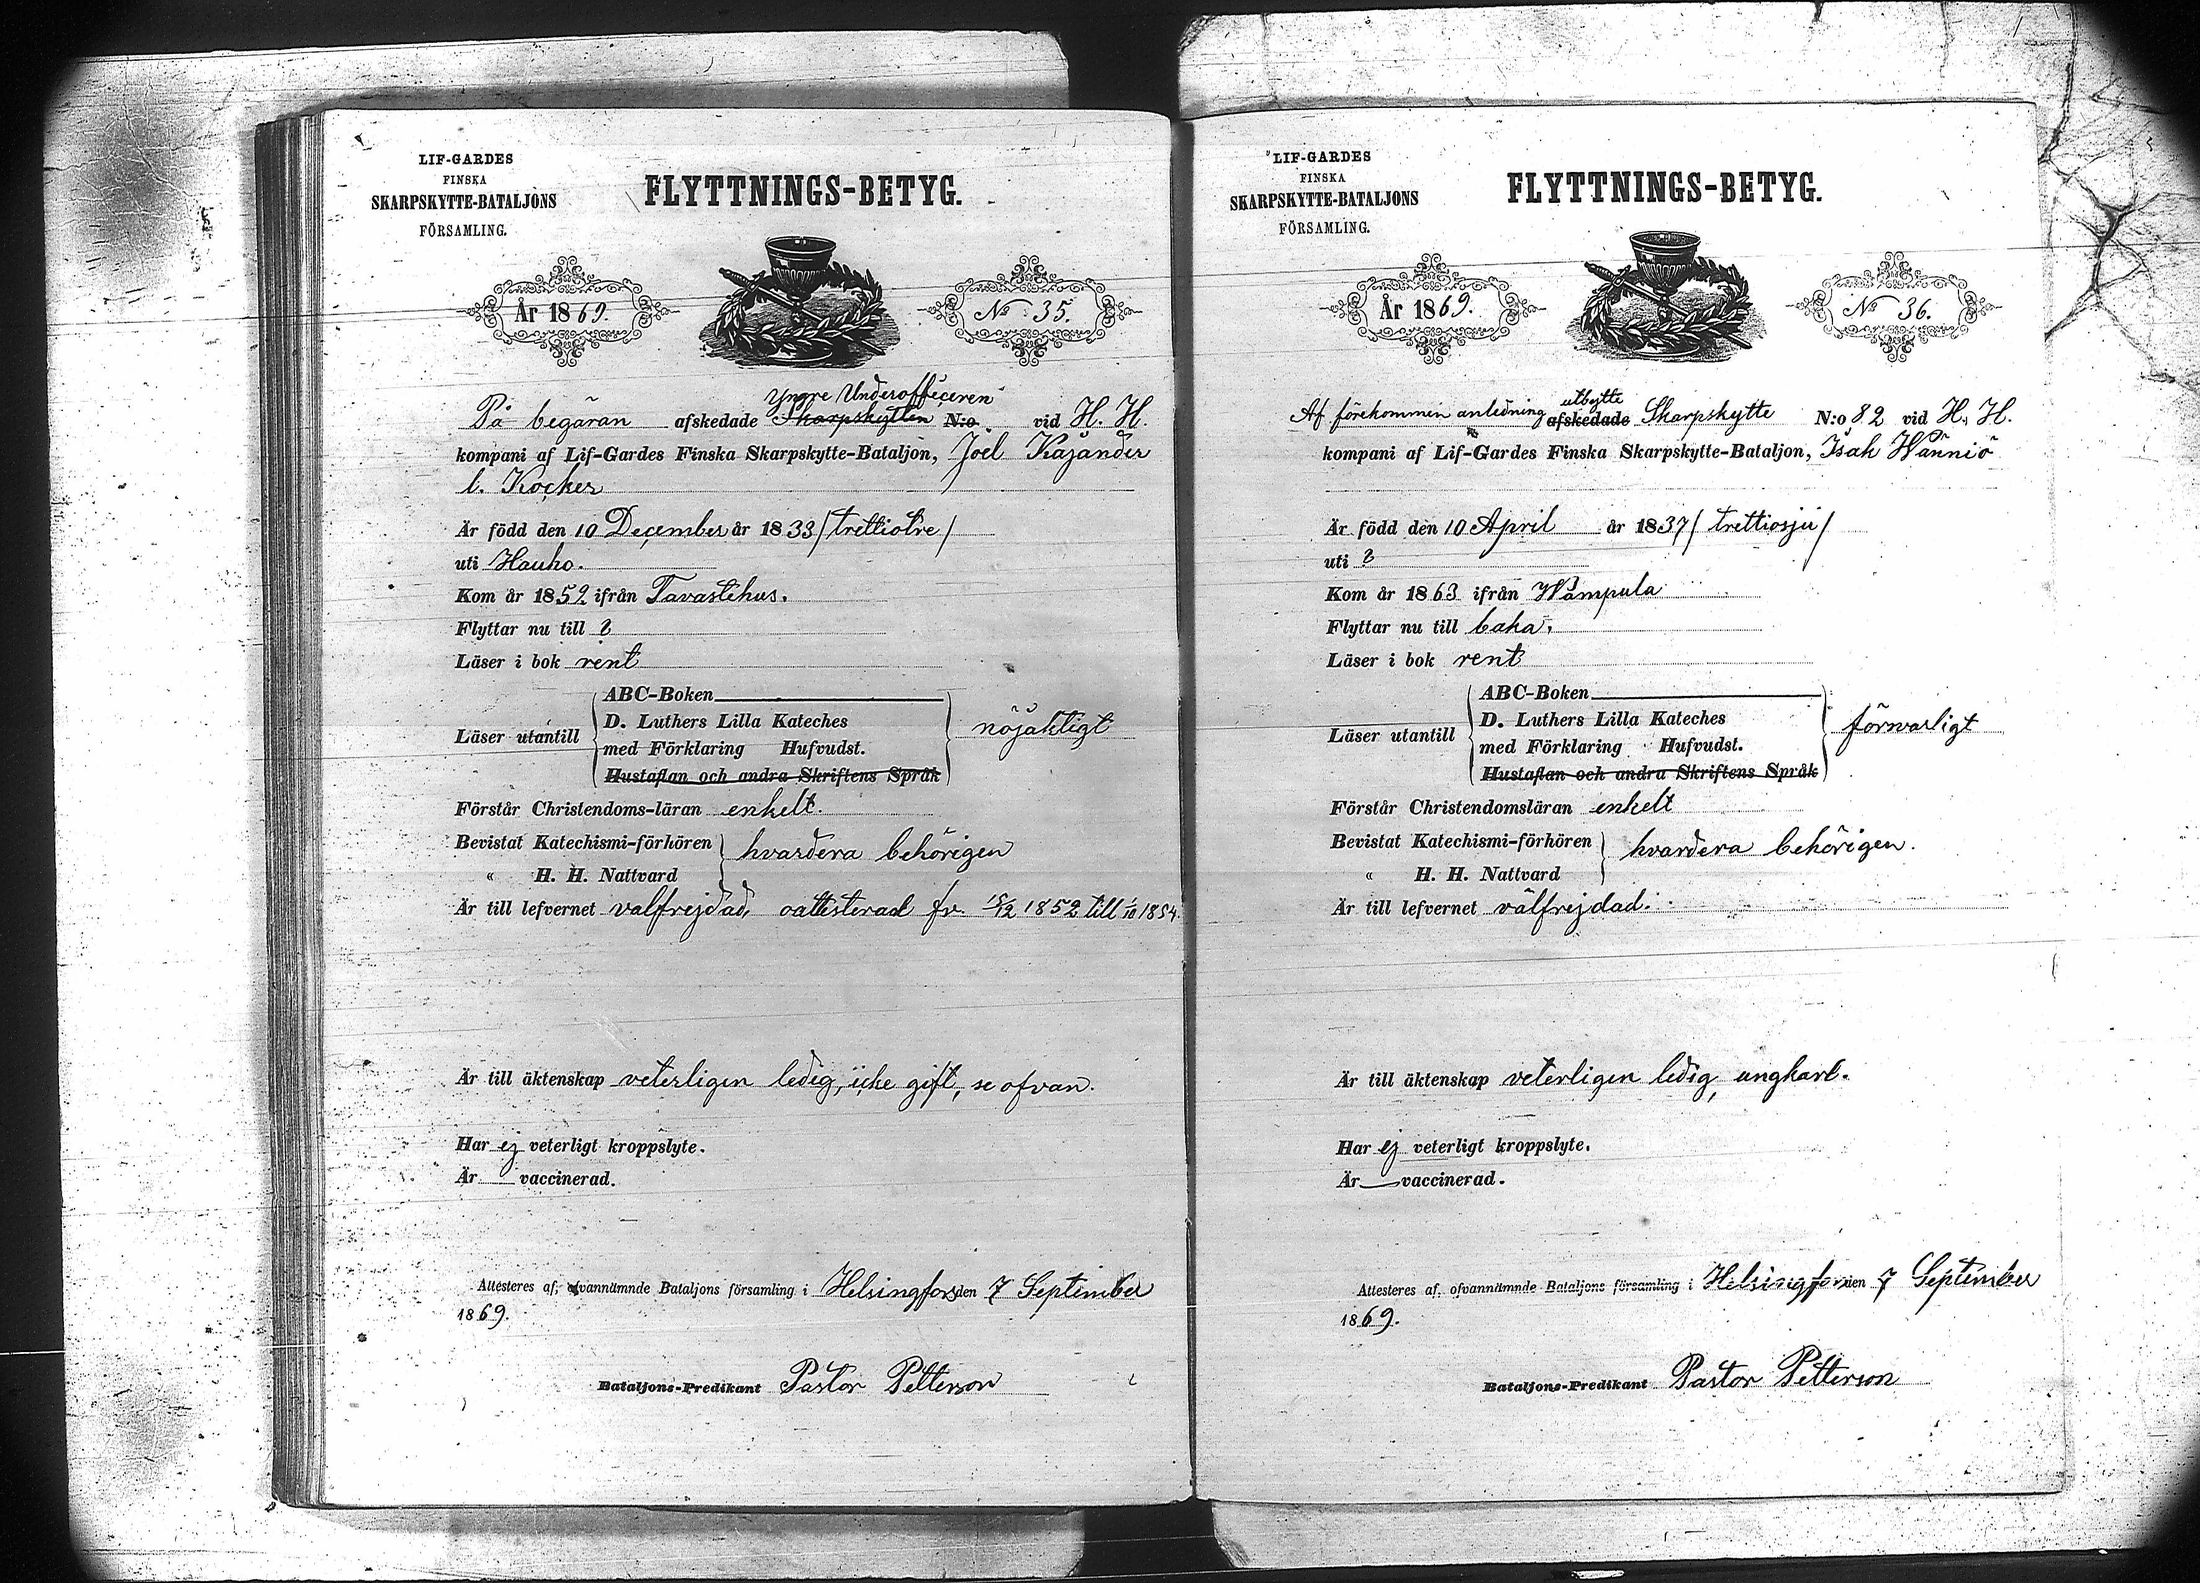 LIF-GARDES
FINSKA
SKARPSKYTTE-BATALJONS
FÖRSAMLING.
FLYTTNINGS-BETYG.
År 1869.
No 35.
Yngre Underofficeren
På begäran afskedade Skarpskytten N:o vid H. H.
kompani af Lif-Gardes Finska Skarpskytte-Bataljon, Joel Kajander
l. Kocker
Är född den 10 December år 1833 / trettiotre /
uti Hauho.
Kom år 1852 ifrån Tavastehus.
Flyttar nu till ?
Läser i bok rent
ABC-Boken
D. Luthers Lilla Kateches
Läser utantill med Förklaring Hufvudst. nöjaktigt
Hustaflan och andra Skriftens Språk
Förstår Christendoms-läran enkelt.
Bevistat Katechismi-förhören hvardera behörigen
« H. H. Nattvard
Är till lefvernet välfrejdad, oattesterad fr. 15/12 1852 till 1/10 1854.
Är till äktenskap veterligen ledig, icke gift, se ofvan.
Har ej veterligt kroppslyte.
Är vaccinerad.
Attesteres af, ofvannämnde Bataljons församling i Helsingfors den 7 September
1869.
Bataljons-Predikant Pastor Petterson
LIF-GARDES
FINSKA
SKARPSKYTTE-BATALJONS
FÖRSAMLING.
FLYTTNINGS-BETYG.
År 1869.
No 36.
utbytte
Af förekommen anledning afskedade Skarpskytte N:o 82 vid H. H.
kompani af Lif-Gardes Finska Skarpskytte-Bataljon, Isak Wänniö
Är född den 10 April år 1837 / trettiosju /
uti ?
Kom år 1863 ifrån Wampula
Flyttar nu till baka.
Läser i bok rent
ABC-Boken
D. Luthers Lilla Kateches
Läser utantill med Förklaring Hufvudst. försvarligt
Hustaflan och andra Skriftens Språk
Förstår Christendomsläran enkelt
Bevistat Katechismi-förhören hvardera behörigen.
« H. H. Nattvard
Är till lefvernet välfrejdad.
Är till äktenskap veterligen ledig, ungkarl.
Har ej veterligt kroppslyte.
Är vaccinerad.
Attesteres af, ofvannämnde Bataljons församling i Helsingfors den 7 September
1869.
Bataljons-Predikant Pastor Petterson